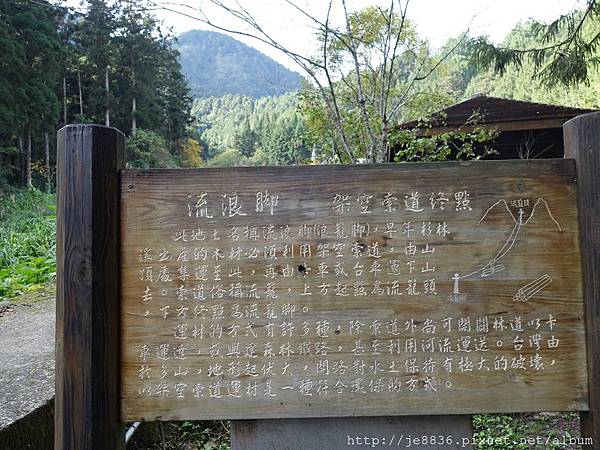 流浪腳 架空索道終點
此地土名稱流浪腳(流籠腳),早年杉林
溪生產的木材必須利用架空索道,由山
頂處集運至此,再由卡車或台車運下山
去。索道俗稱流籠,上方起點為流籠頭
,下方終點為流籠腳。
運材的方式有許多種,除索道外尚可開闢林道以卡
車運送,或興建森林鐵路,甚至利用河流運送。台灣由
於多山,地形起伏大,開路對水土保持有極大的破壞,
以架空索道運材是一種符合環保的方式。
流籠頭
流籠腳
http://je8836.pixnet.net/album